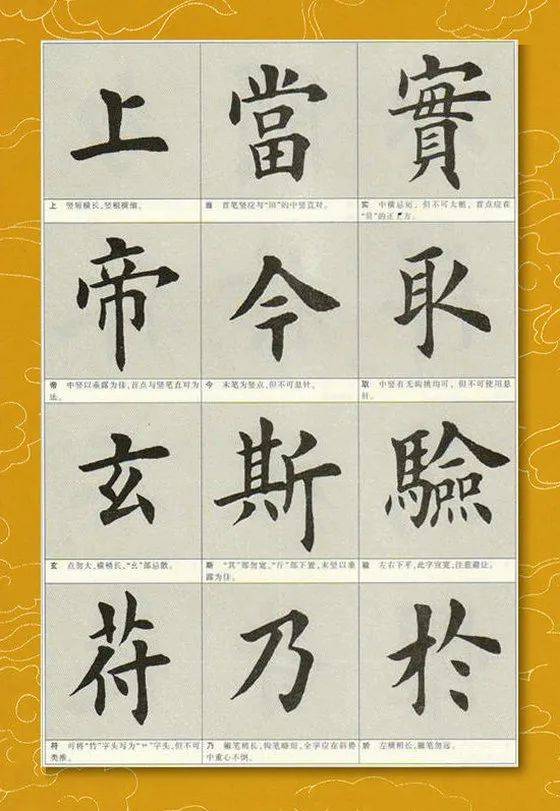 上 當 實
上 竖短横长,竖粗横细。
當 首笔竖应与“田”的中竖直对。
实 中横忌短,但不可太粗,首点应在
“贝”的正 方。
帝 今 取
帝 中竖以垂露为佳,首点与竖笔直对为
法。
今 末笔为竖点,但不可悬针。
取 中竖有无钩挑均可,但不可使用悬
针。
玄 斯 驗
玄 点勿大,横稍长,“幺”部忌散。
斯 “其”部勿宽,“斤”部下置,末竖以垂
露为佳。
驗 左右下平,此字宜宽,注意避让。
符 乃 於
符 可将“竹”字头写为“艹”字头,但不可
类推。
乃 撇笔稍长,钩笔略短,全字应在斜势
中重心不倒。
於 左横稍长,撇笔勿远。